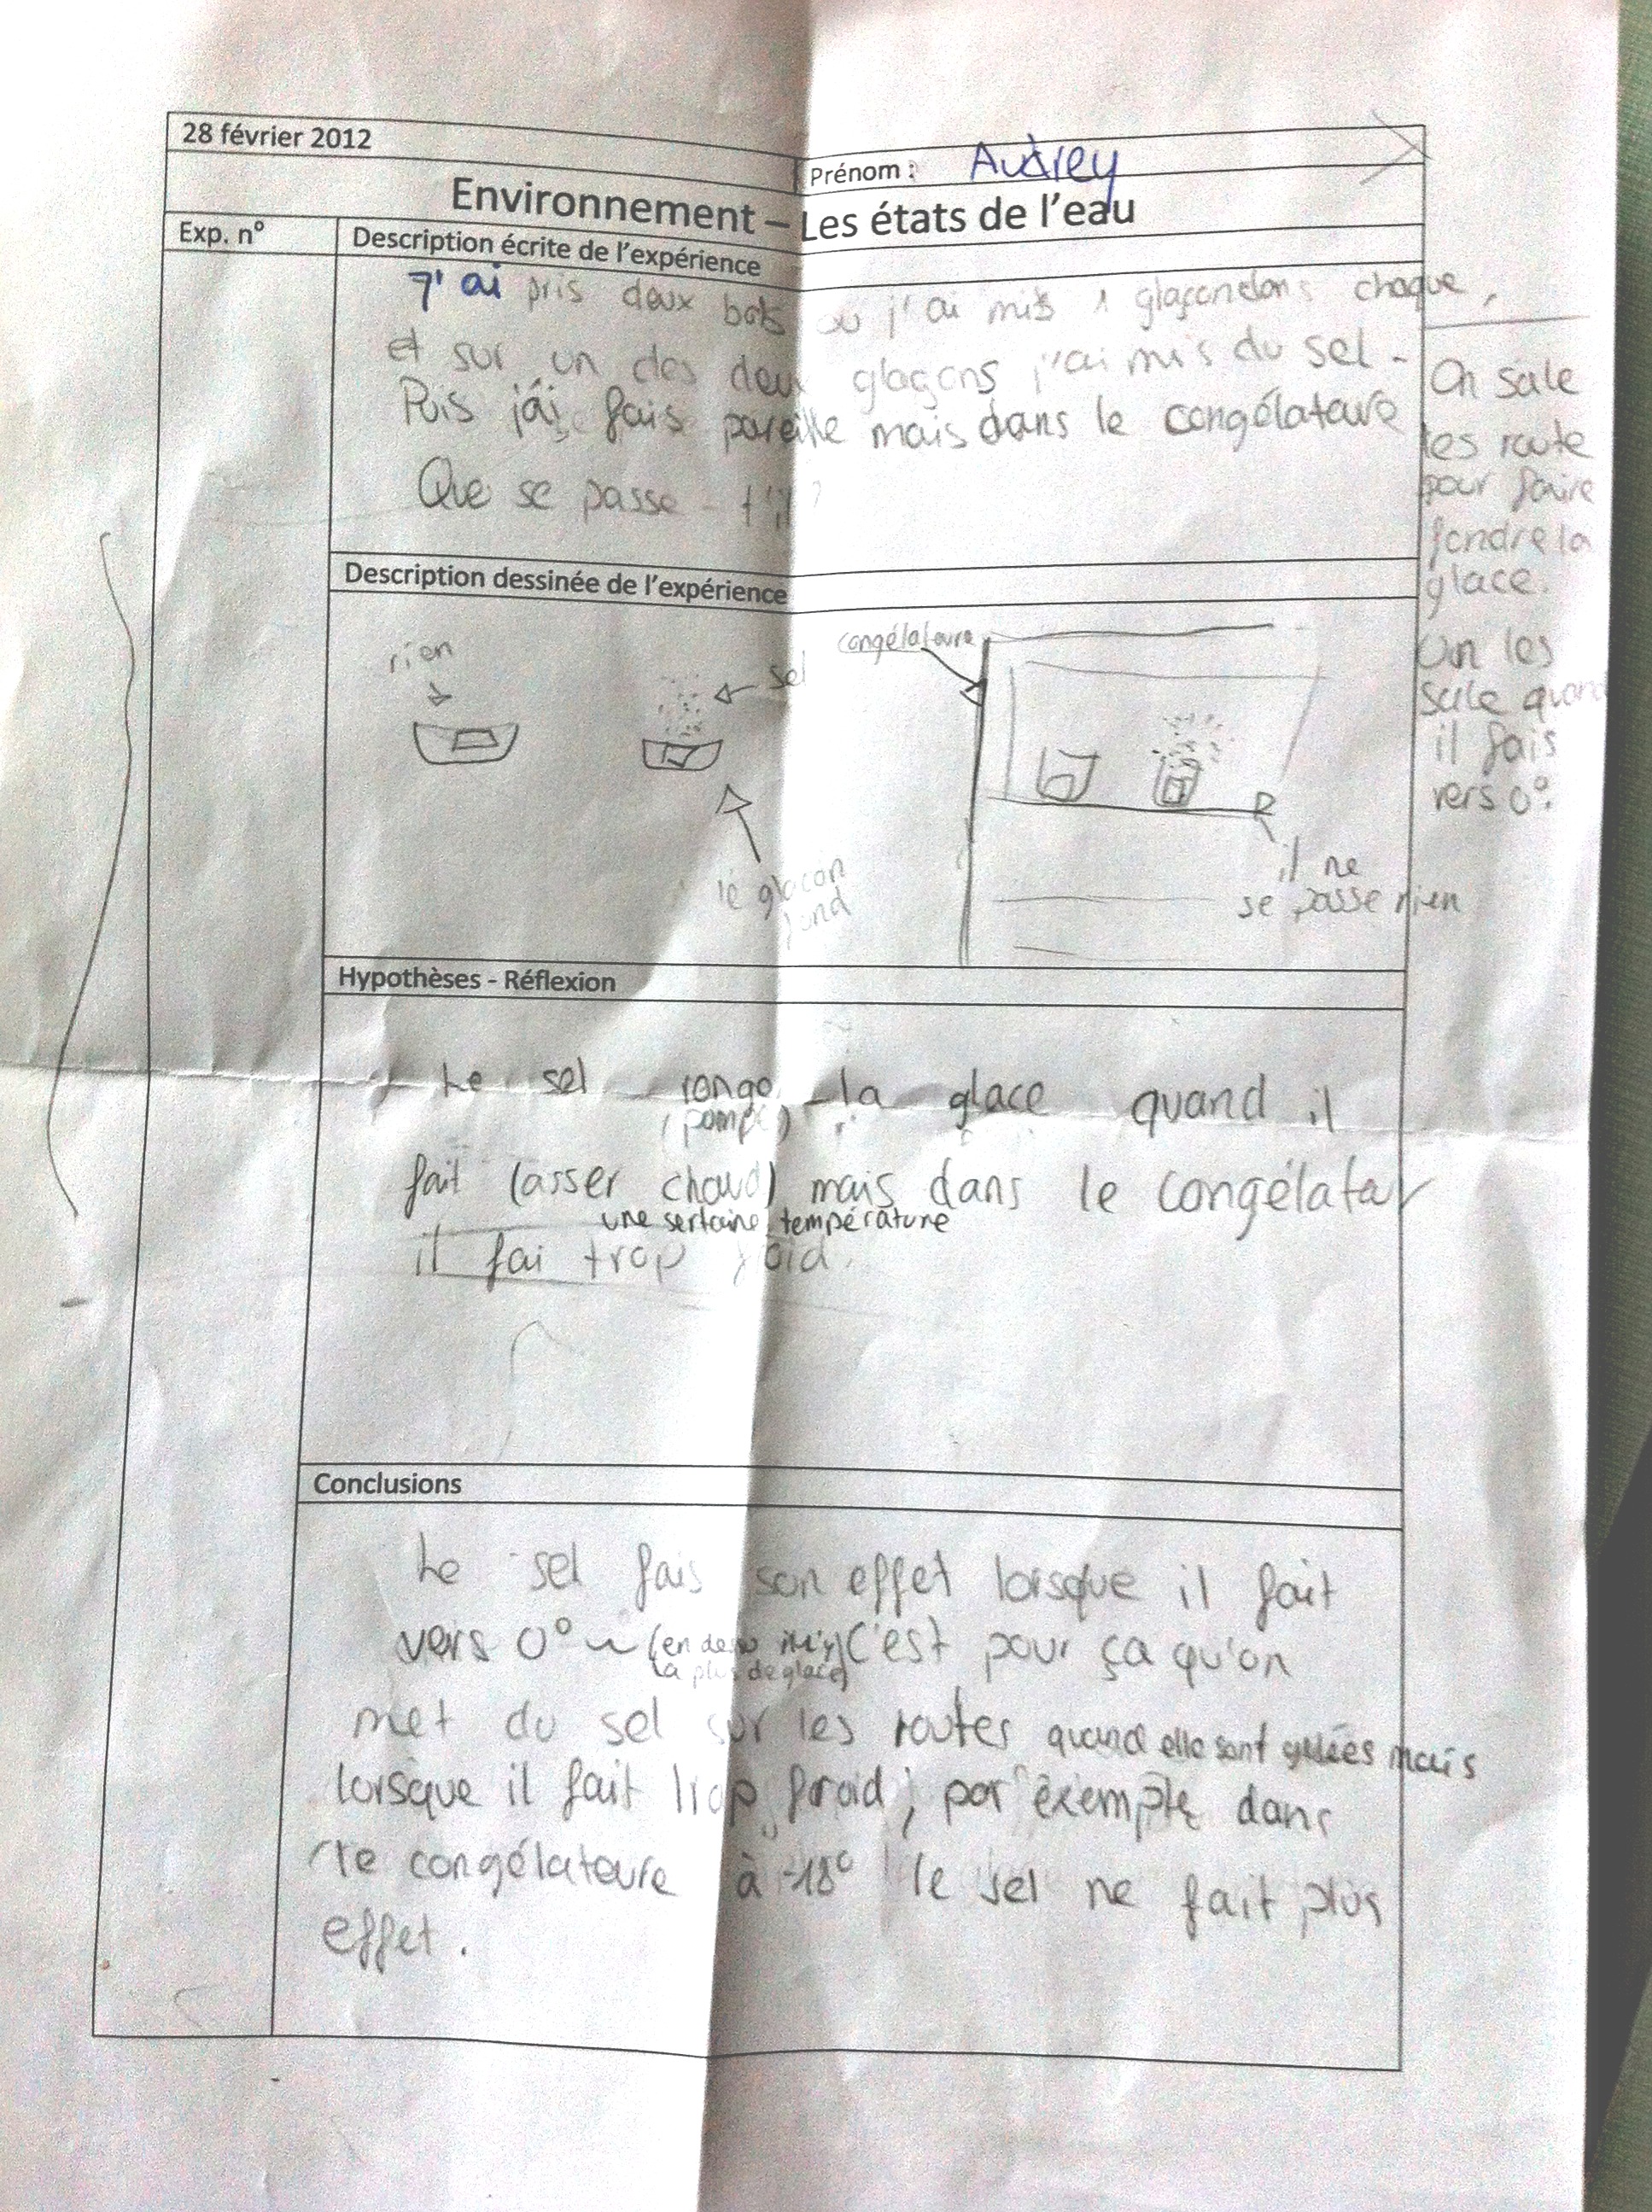 28 février 2012
Prénom : Audrey
Environnement – Les états de l'eau
Exp. n°
Description écrite de l'expérience
J'ai pris deux bols où j'ai mis 1 glaçon dans chaque,
et sur un des deux glaçons j'ai mis du sel.
Puis j'ai fais pareille mais dans le congélateure
Que se passe-t'il?
On sale
les route
pour faire
fondre la
glace.
On les
sale quand
il fais
vers 0°.
Description dessinée de l'expérience
rien
sel
le glacon
fond
congélateure
il ne
se passe rien
Hypothèses - Réflexion
Le sel ronge la glace quand il
(pompe)
fait (asser chaud) mais dans le congélata
une sertaine température
il fai trop foid.
Conclusions
Le sel fais son effet lorsque il fait
vers 0° ~ (en desu il n'y C'est pour ça qu'on
a plus de glace)
met du sel sur les routes quand elle sont gelées mais
lorsque il fait trop froid, par exemple dans
le congélateure à -18° le sel ne fait plus
effet.